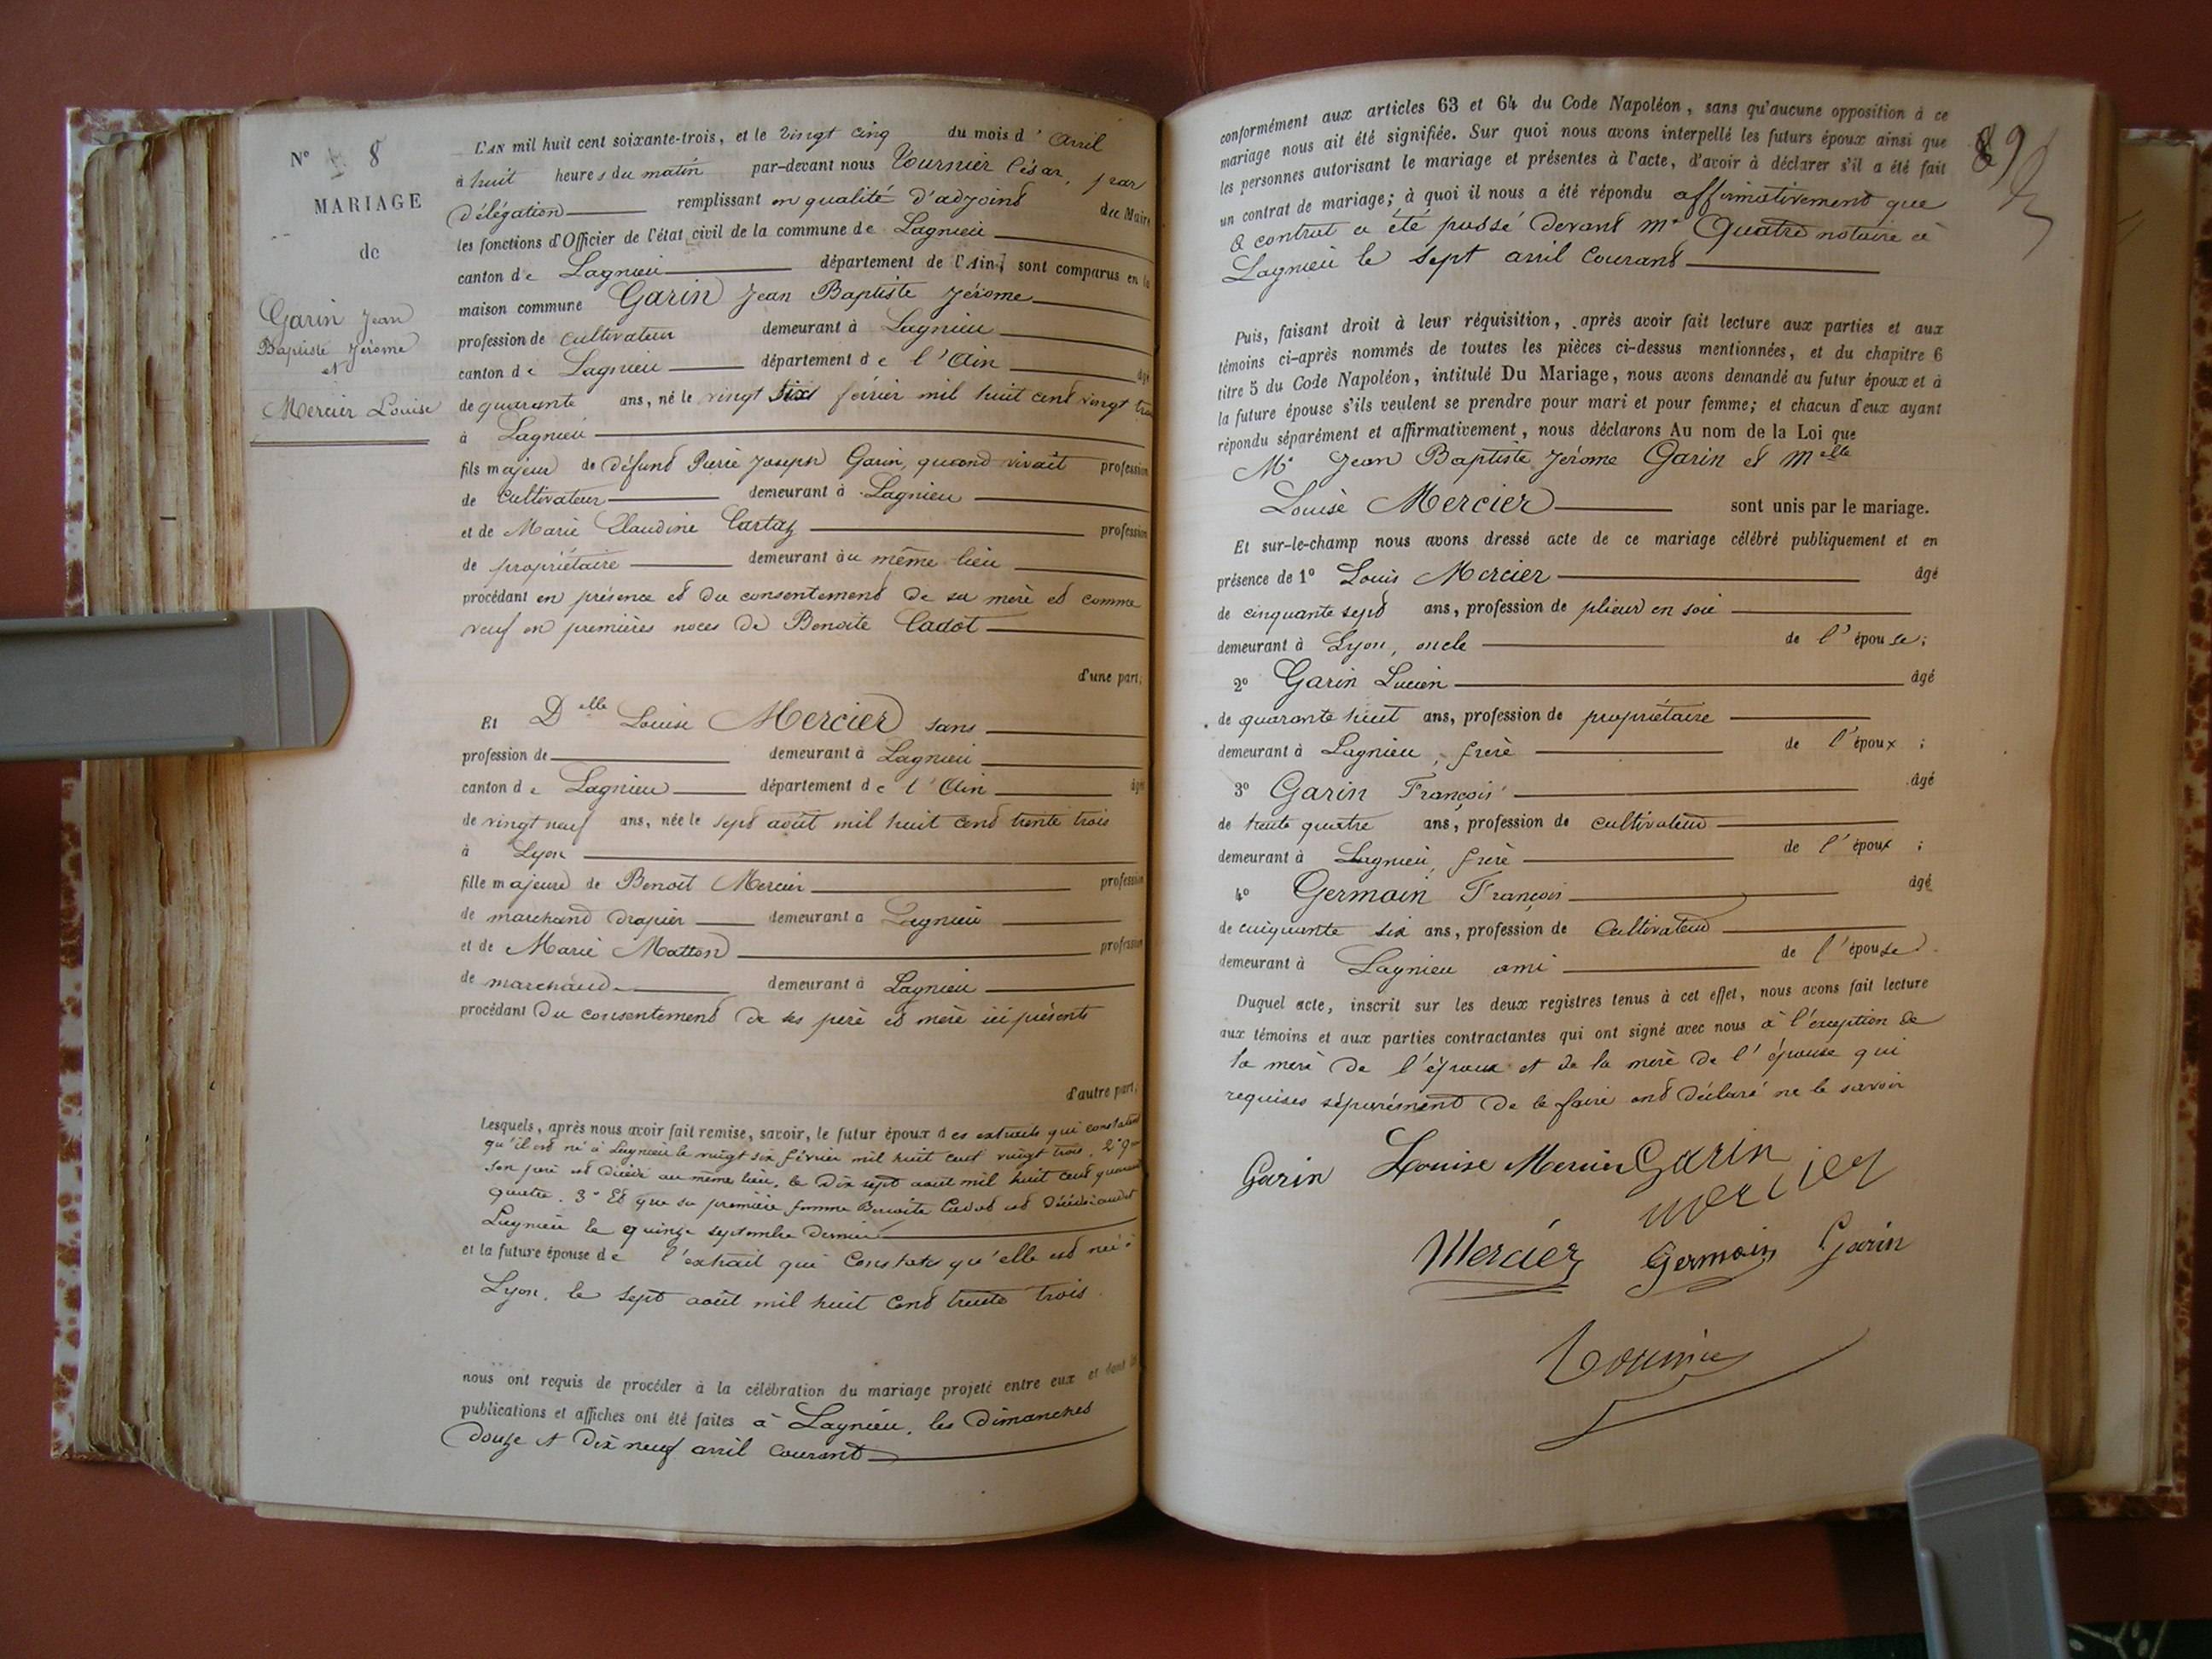 N° 8
MARIAGE
de
Garin Jean
Baptiste Jérome
et
Mercier Louise
L'AN mil huit cent soixante-trois, et le vingt cinq du mois d'avril
à huit heures du matin par-devant nous Tournier César, par
délégation remplissant en qualité d'adjoint du Maire
les fonctions d'Officier de l'état civil de la commune de Lagnieu
canton de Lagnieu département de l'Ain, sont comparus en la
maison commune Garin Jean Baptiste Jérome
profession de cultivateur demeurant à Lagnieu
canton de Lagnieu département de l'Ain âgé
de quarante ans, né le vingt six février mil huit cent vingt trois
à Lagnieu
fils majeur de défunt Pierre Joseph Garin, quand vivait profession
de cultivateur demeurant à Lagnieu
et de Marie Claudine Cartaz profession
de propriétaire demeurant au même lieu
procédant en présence et du consentement de sa mère et comme
veuf en premières noces de Benoite Cadot
d'une part;
Et Delle Louise Mercier sans
profession de demeurant à Lagnieu
canton de Lagnieu département de l'Ain âgée
de vingt neuf ans, née le sept août mil huit cent trente trois
à Lyon
fille majeure de Benoit Mercier profession
de marchand drapier demeurant à Lagnieu
et de Marie Matton profession
de marchande demeurant à Lagnieu
procédant du consentement de ses père et mère ici présents
d'autre part;
Lesquels, après nous avoir fait remise, savoir, le futur époux des extraits qui constatent
qu'il est né à Lagnieu le vingt six février mil huit cent vingt trois, 2° que
son père est décédé au même lieu, le dix sept août mil huit cent quarante
quatre. 3° Et que sa première femme Benoite Cadot est décédée audit
Lagnieu le quinze septembre dernier
et la future épouse de l'extrait qui constate qu'elle est née à
Lyon, le sept août mil huit cent trente trois
nous ont requis de procéder à la célébration du mariage projeté entre eux et dont les
publications et affiches ont été faites à Lagnieu, les dimanches
douze et dix neuf avril courant
89
conformément aux articles 63 et 64 du Code Napoléon, sans qu'aucune opposition à ce
mariage nous ait été signifiée. Sur quoi nous avons interpellé les futurs époux ainsi que
les personnes autorisant le mariage et présentes à l'acte, d'avoir à déclarer s'il a été fait
un contrat de mariage; à quoi il nous a été répondu affirmativement que
ce contrat a été passé devant Me Quatre notaire à
Lagnieu le sept avril courant
Puis, faisant droit à leur réquisition, après avoir fait lecture aux parties et aux
témoins ci-après nommés de toutes les pièces ci-dessus mentionnées, et du chapitre 6
titre 5 du Code Napoléon, intitulé Du Mariage, nous avons demandé au futur époux et à
la future épouse s'ils veulent se prendre pour mari et pour femme; et chacun d'eux ayant
répondu séparément et affirmativement, nous déclarons Au nom de la Loi que
Mr Jean Baptiste Jérome Garin et Melle
Louise Mercier sont unis par le mariage.
Et sur-le-champ nous avons dressé acte de ce mariage célébré publiquement et en
présence de 1° Louis Mercier âgé
de cinquante sept ans, profession de plieur en soie
demeurant à Lyon, oncle de l'épouse;
2° Garin Lucien âgé
de quarante huit ans, profession de propriétaire
demeurant à Lagnieu, frère de l'époux;
3° Garin François âgé
de trente quatre ans, profession de cultivateur
demeurant à Lagnieu, frère de l'époux;
4° Germain François âgé
de cinquante six ans, profession de cultivateur
demeurant à Lagnieu ami de l'épouse
Duquel acte, inscrit sur les deux registres tenus à cet effet, nous avons fait lecture
aux témoins et aux parties contractantes qui ont signé avec nous à l'exception de
la mère de l'époux et de la mère de l'épouse qui
requises séparément de le faire ont déclaré ne le savoir
Garin Louise Mercier Garin
mercier
Mercier Germain Garin
Tournier